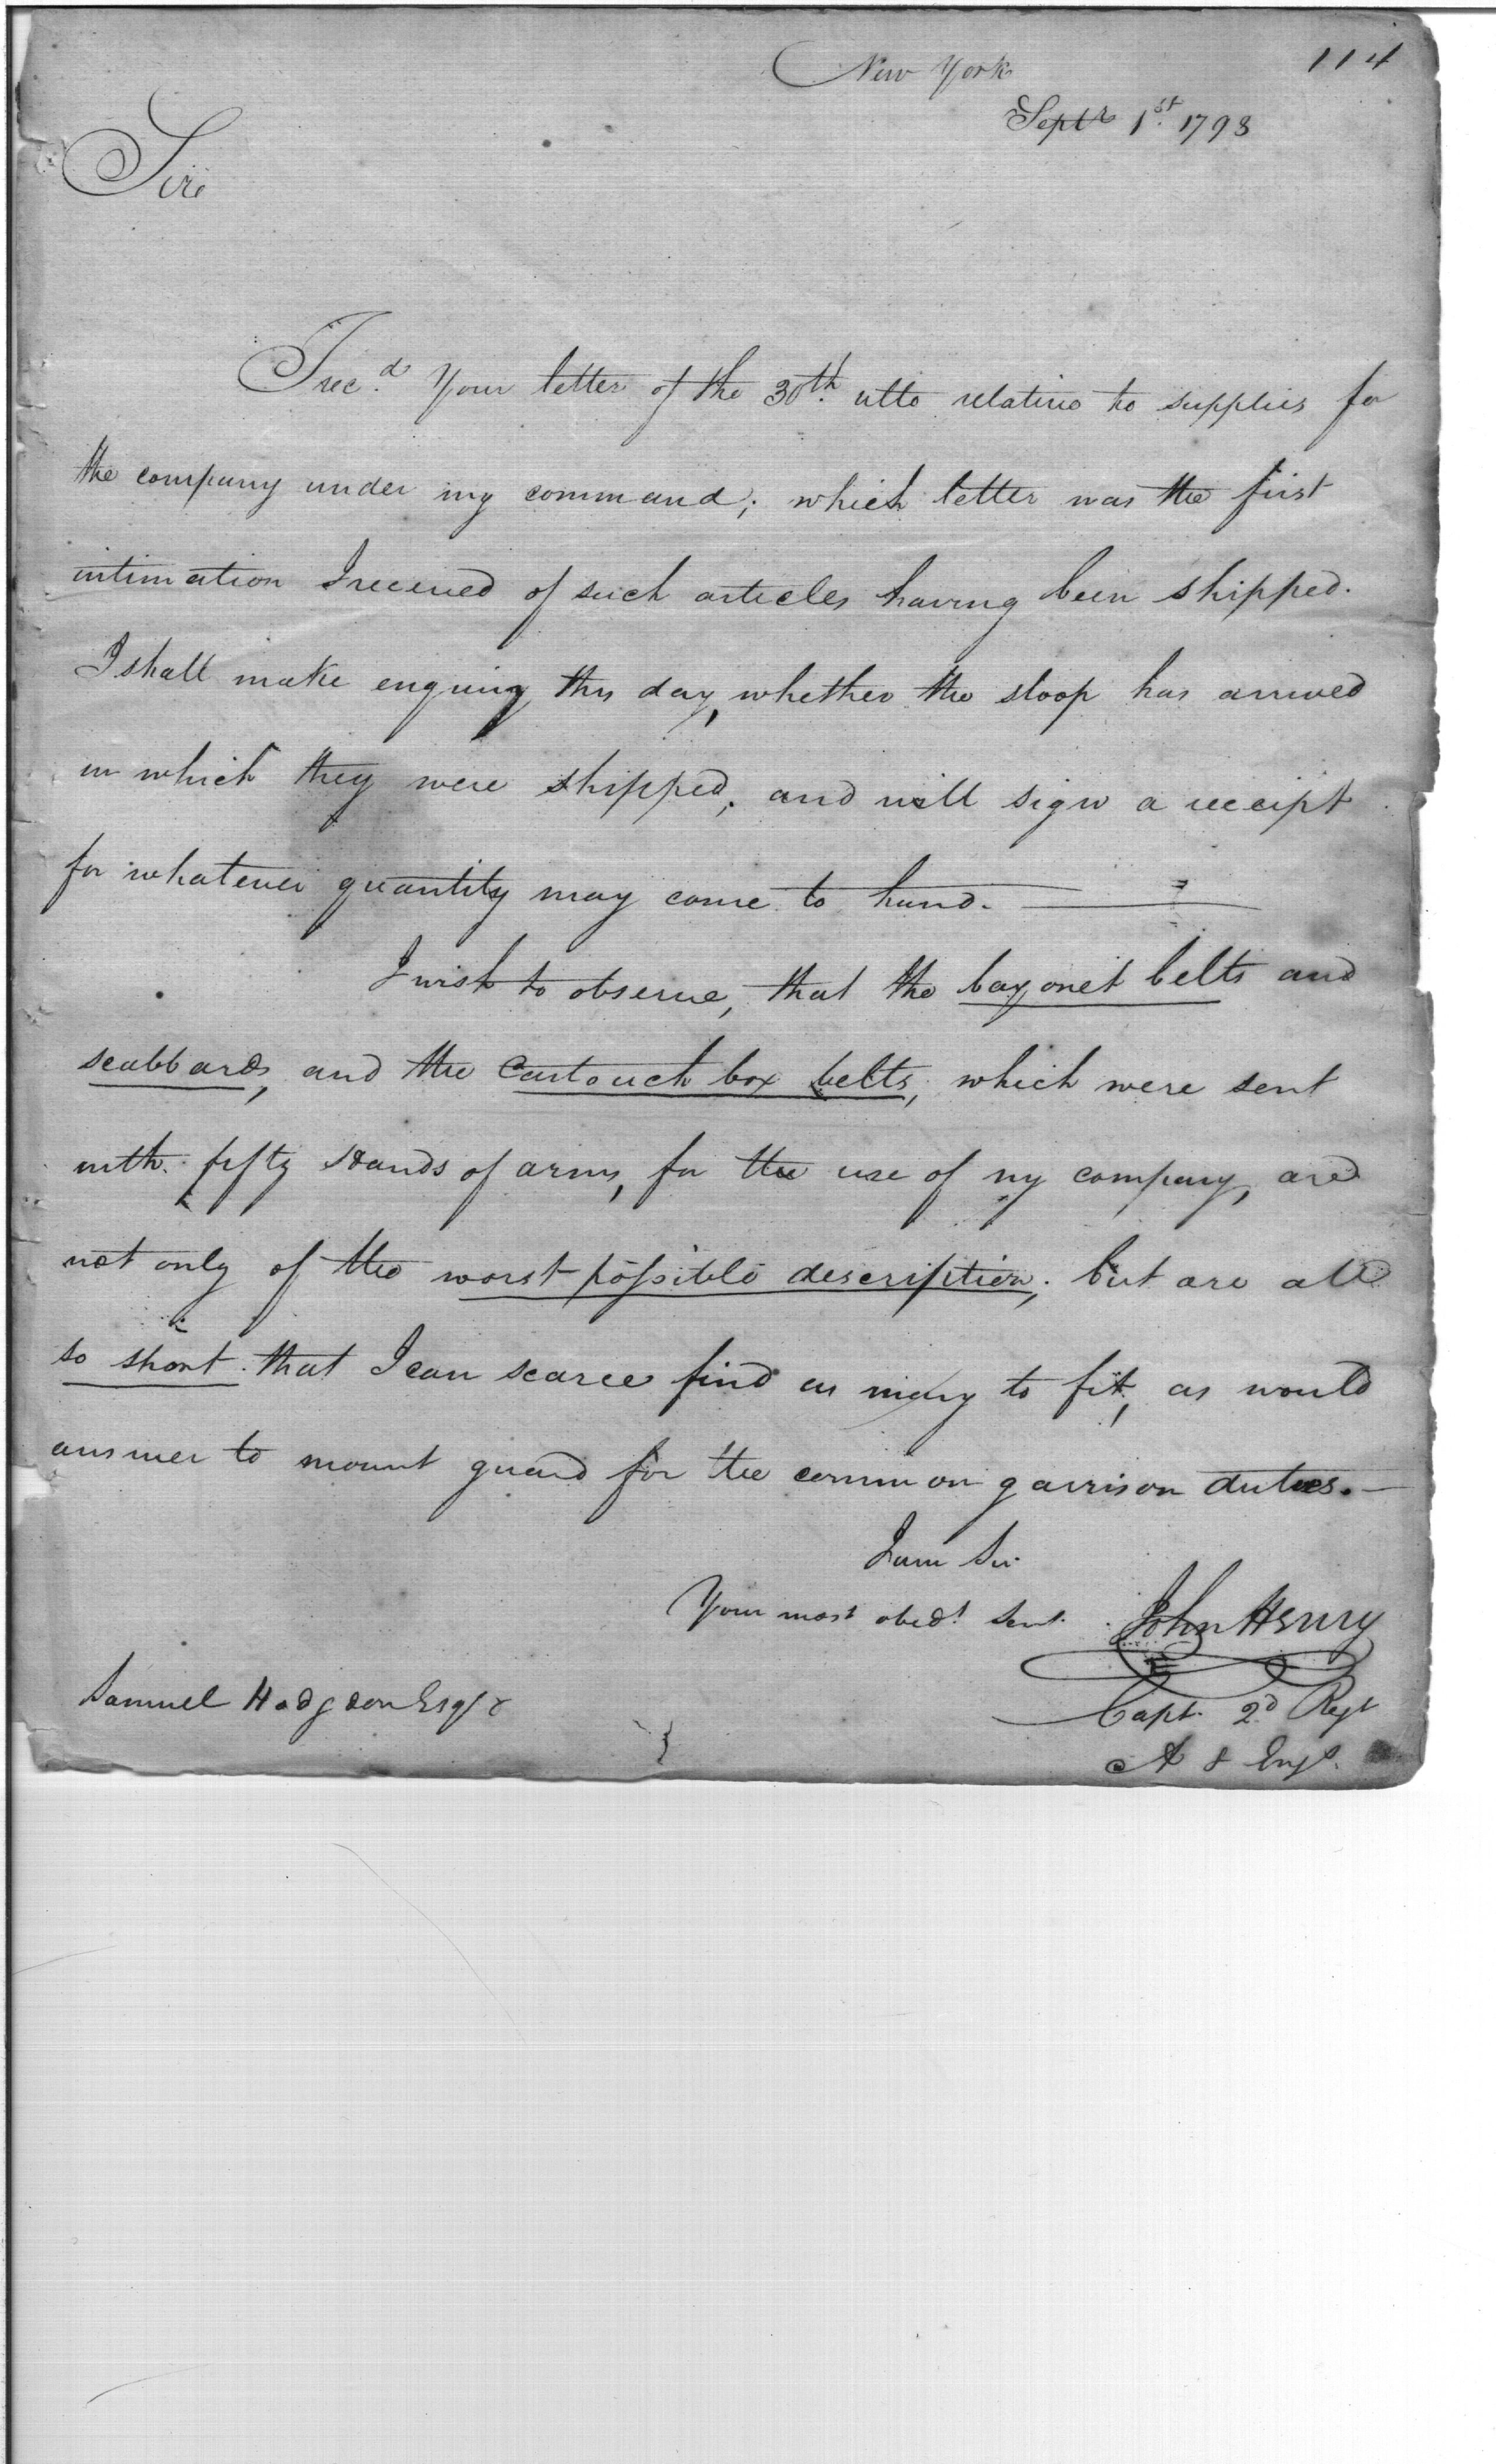 114
New York
Septr 1st 1798
Sir
I recd Your letter of the 30th ulto relative to supplies for
the company under my command; which letter was the first
intimation I received of such articles having been shipped.
I shall make enquiry this day, whether the sloop has arrived
in which they were shipped; and will sign a receipt
for whatever quantity may come to hand.
I wish to observe, that the bayonet belts and
scabbards, and the Cartouch box belts, which were sent
with fifty stands of arms, for the use of my company, are
not only of the worst possible description; but are all
so short that I can scarce find as many to fit, as would
answer to mount guard for the common garrison duties.—
I am Sir
Your most obedt Servt. John Henry
Samuel Hodgdon Esqr
Capt. 2d Regt
A & Engs.